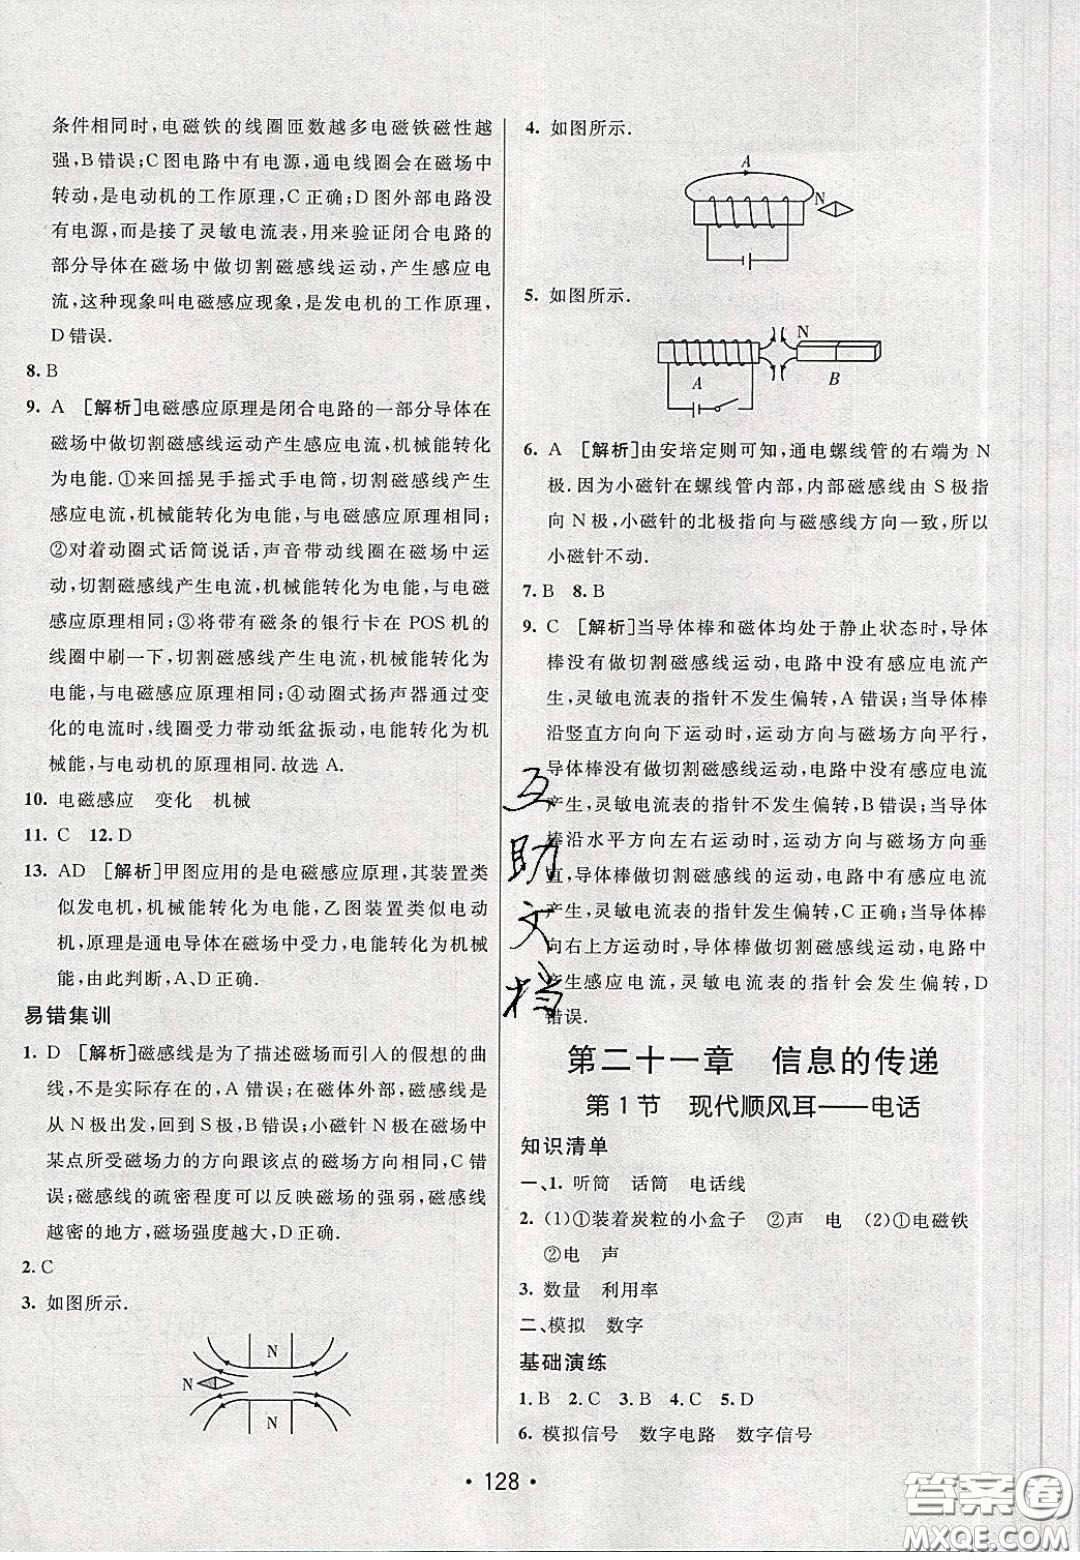 条件相同时,电磁铁的线圈匝数越多电磁铁磁性越
强,B错误;C图电路中有电源,通电线圈会在磁场中
转动,是电动机的工作原理,C正确;D图外部电路没
有电源,而是接了灵敏电流表,用来验证闭合电路的
部分导体在磁场中做切割磁感线运动,产生感应电
流,这种现象叫电磁感应现象,是发电机的工作原理,
D错误.
8. B
9. A [解析]电磁感应原理是闭合电路的一部分导体在
磁场中做切割磁感线运动产生感应电流,机械能转化
为电能.①来回摇晃手摇式手电筒,切割磁感线产生
感应电流,机械能转化为电能,与电磁感应原理相同;
②对着动圈式话筒说话,声音带动线圈在磁场中运
动,切割磁感线产生电流,机械能转化为电能,与电磁
感应原理相同;③将带有磁条的银行卡在POS机的
线圈中刷一下,切割磁感线产生电流,机械能转化为
电能,与电磁感应原理相同;④动圈式扬声器通过变
化的电流时,线圈受力带动纸盆振动,电能转化为机
械能,与电动机的原理相同.故选A.
10. 电磁感应 变化 机械
11. C 12. D
13. AD [解析]甲图应用的是电磁感应原理,其装置类
似发电机,机械能转化为电能,乙图装置类似电动
机,原理是通电导体在磁场中受力,电能转化为机械
能,由此判断,A、D正确.
易错集训
1. D [解析]磁感线是为了描述磁场而引入的假想的曲
线,不是实际存在的,A错误;在磁体外部,磁感线是
从N极出发,回到S极,B错误;小磁针N极在磁场中
某点所受磁场力的方向跟该点的磁场方向相同,C错
误;磁感线的疏密程度可以反映磁场的强弱,磁感线
越密的地方,磁场强度越大,D正确.
2. C
3. 如图所示.
N
N
N
4. 如图所示.
A
N
5. 如图所示.
N
A
B
6. A [解析]由安培定则可知,通电螺线管的右端为N
极.因为小磁针在螺线管内部,内部磁感线由S极指
向N极,小磁针的北极指向与磁感线方向一致,所以
小磁针不动.
7. B 8. B
9. C [解析]当导体棒和磁体均处于静止状态时,导体
棒没有做切割磁感线运动,电路中没有感应电流产
生,灵敏电流表的指针不发生偏转,A错误;当导体棒
沿竖直方向向下运动时,运动方向与磁场方向平行,
导体棒没有做切割磁感线运动,电路中没有感应电流
产生,灵敏电流表的指针不发生偏转,B错误;当导体
棒沿水平方向左右运动时,运动方向与磁场方向垂
直,导体棒做切割磁感线的运动,电路中有感应电流
产生,灵敏电流表的指针发生偏转,C正确;当导体棒
向右上方运动时,导体棒做切割磁感线运动,电路中
产生感应电流,灵敏电流表的指针会发生偏转,D
错误.
第二十一章 信息的传递
第1节 现代顺风耳——电话
知识清单
一、1. 听筒 话筒 电话线
2. (1)①装着炭粒的小盒子 ②声 电 (2)①电磁铁
②电 声
3. 数量 利用率
二、模拟 数字
基础演练
1. B 2. C 3. B 4. C 5. D
6. 模拟信号 数字电路 数字信号
互助文档
• 128 •
答案圈
MXQE.COM